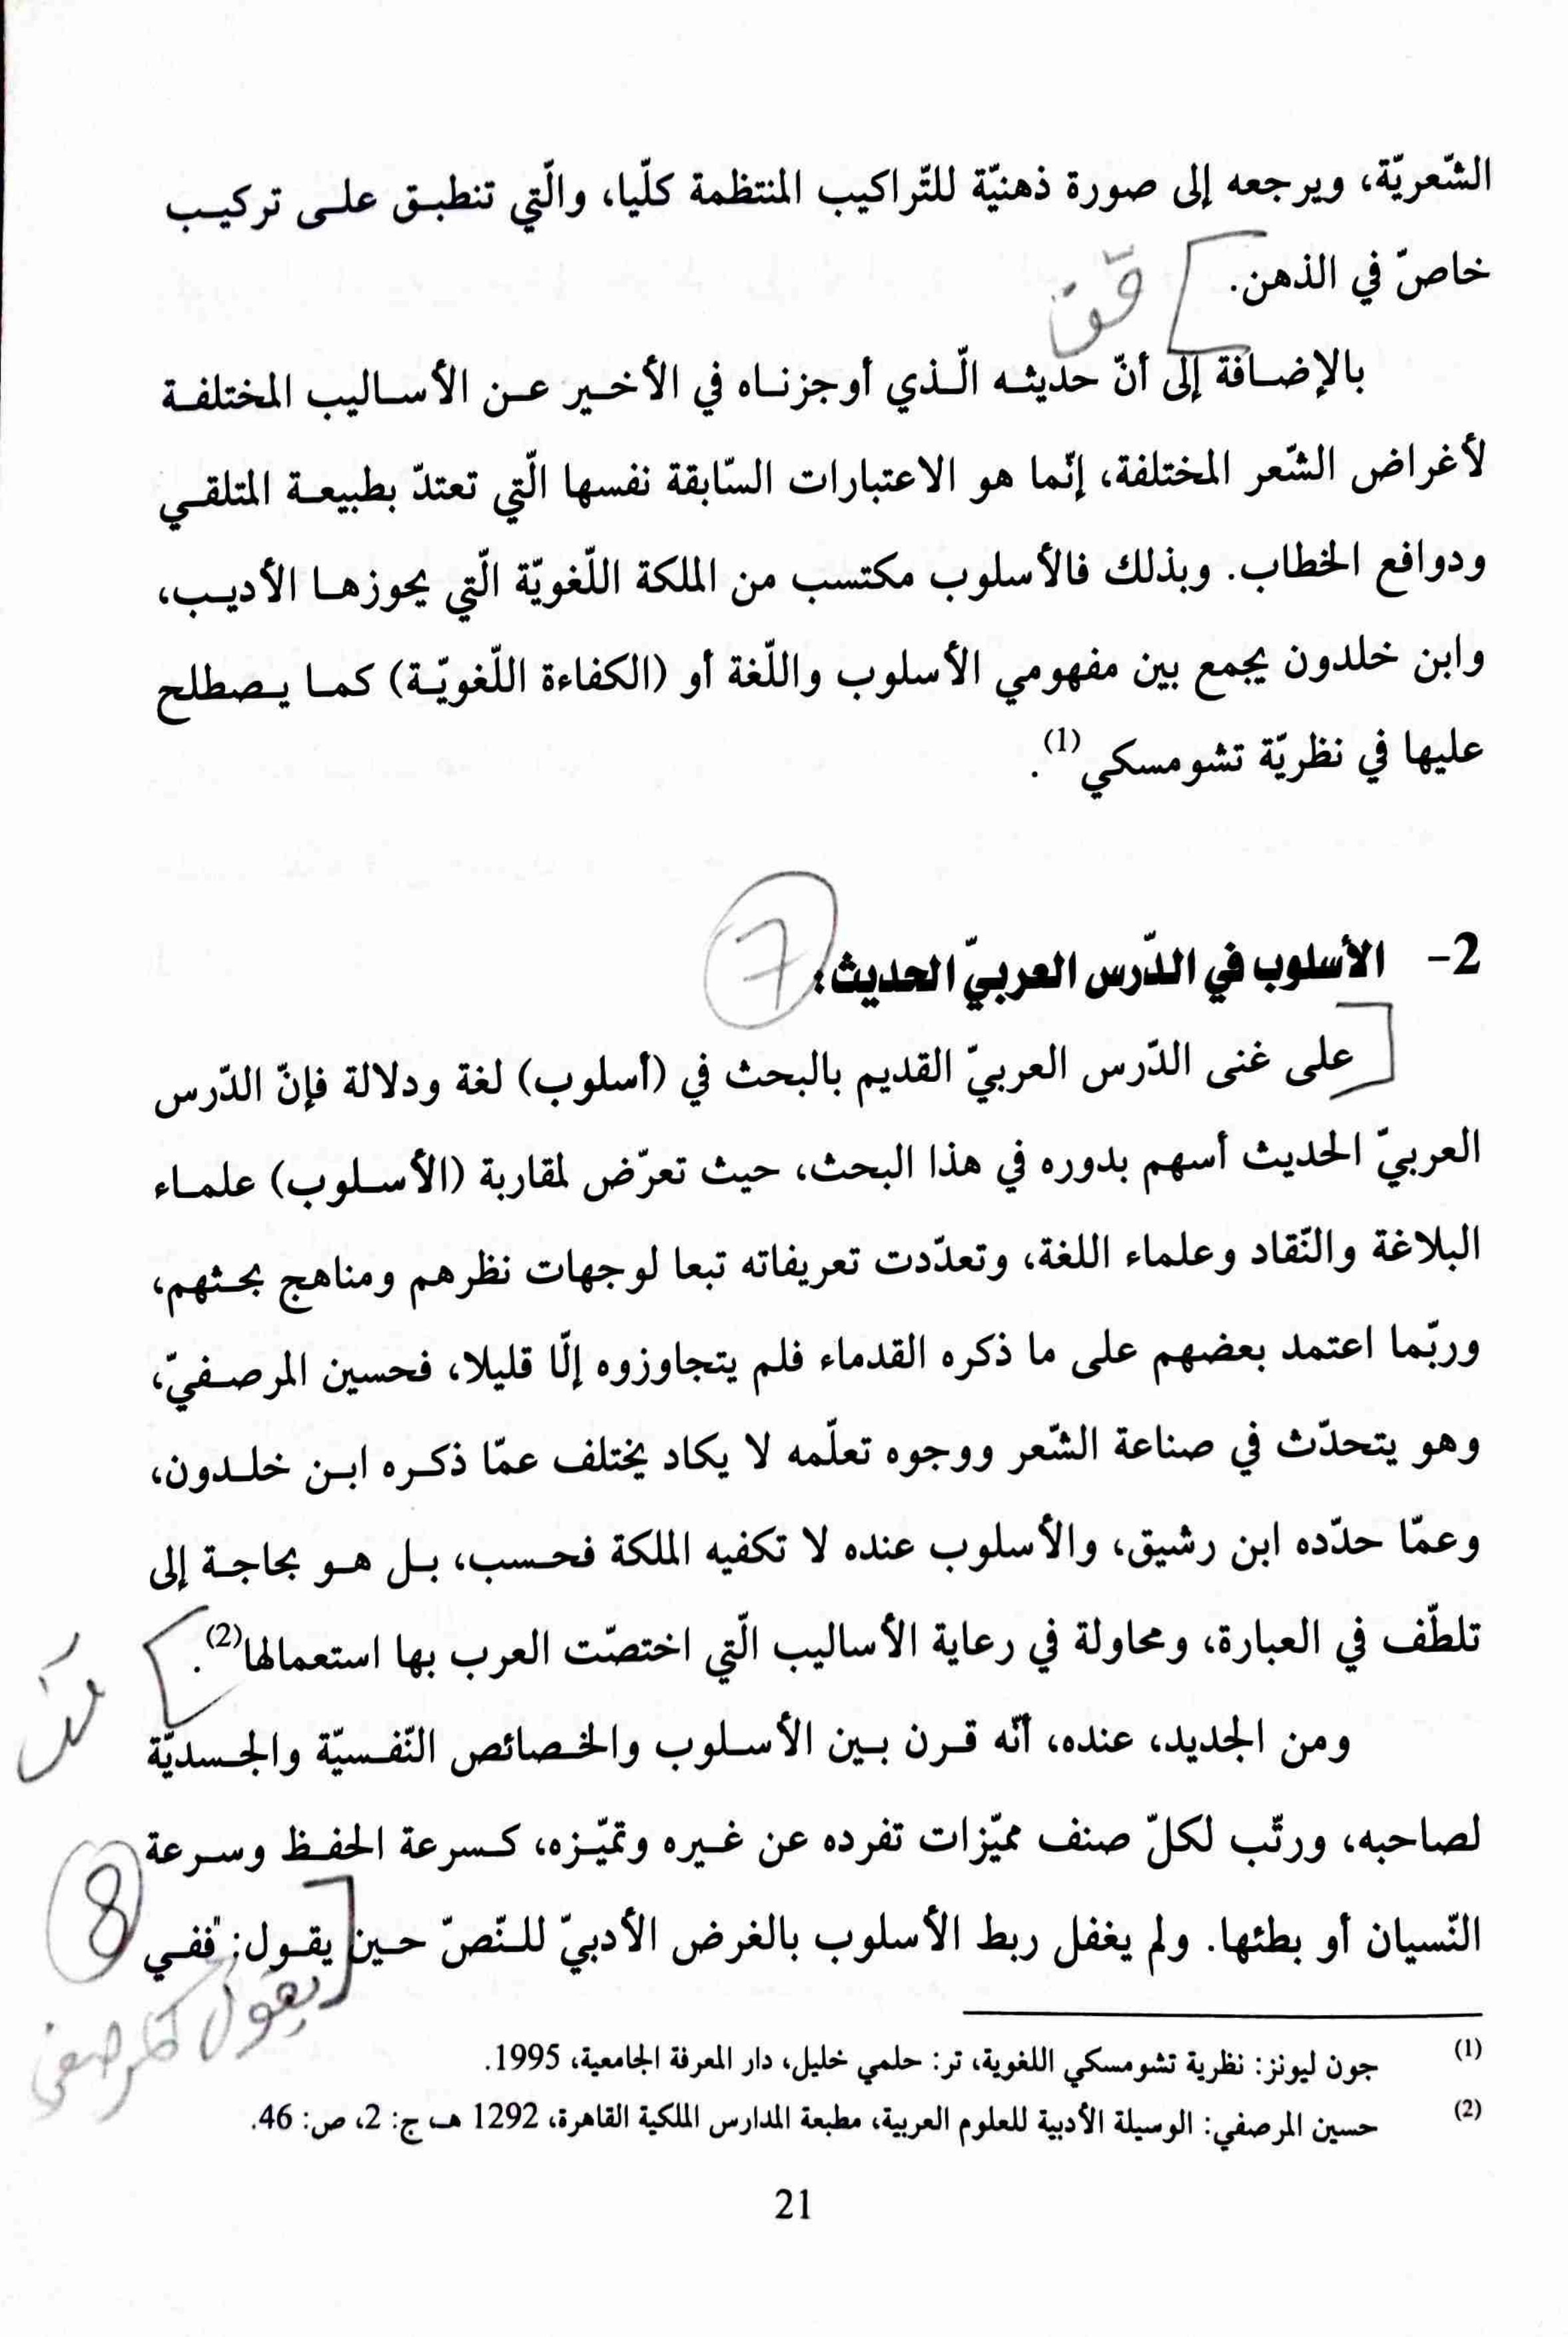 الشّعريّة، ويرجعه إلى صورة ذهنيّة للتّراكيب المنتظمة كلّيا، والّتي تنطبق على تركيب
خاصّ في الذهن.
بالإضافة إلى أنّ حديثه الّذي أوجزناه في الأخير عن الأساليب المختلفة
لأغراض الشّعر المختلفة، إنّما هو الاعتبارات السّابقة نفسها الّتي تعتدّ بطبيعة المتلقي
ودوافع الخطاب. وبذلك فالأسلوب مكتسب من الملكة اللّغويّة الّتي يحوزها الأديب،
وابن خلدون يجمع بين مفهومي الأسلوب واللّغة أو (الكفاءة اللّغويّة) كما يصطلح
عليها في نظريّة تشومسكي(1).
2- الأسلوب في الدّرس العربيّ الحديث:
7
على غنى الدّرس العربيّ القديم بالبحث في (أسلوب) لغة ودلالة فإنّ الدّرس
العربيّ الحديث أسهم بدوره في هذا البحث، حيث تعرّض لمقاربة (الأسلوب) علماء
البلاغة والنّقاد وعلماء اللغة، وتعدّدت تعريفاته تبعا لوجهات نظرهم ومناهج بحثهم،
وربّما اعتمد بعضهم على ما ذكره القدماء فلم يتجاوزوه إلّا قليلا، فحسين المرصفيّ،
وهو يتحدّث في صناعة الشّعر ووجوه تعلّمه لا يكاد يختلف عمّا ذكره ابن خلدون،
وعمّا حدّده ابن رشيق، والأسلوب عنده لا تكفيه الملكة فحسب، بل هو بحاجة إلى
تلطّف في العبارة، ومحاولة في رعاية الأساليب الّتي اختصّت العرب بها استعمالها(2).
ومن الجديد، عنده، أنّه قرن بين الأسلوب والخصائص النّفسيّة والجسديّة
لصاحبه، ورتّب لكلّ صنف مميّزات تفرده عن غيره وتميّزه، كسرعة الحفظ وسرعة
8
النّسيان أو بطئها. ولم يغفل ربط الأسلوب بالغرض الأدبيّ للنّصّ حين يقول: "ففي
يقول المرصفي
(1) جون ليونز: نظرية تشومسكي اللغوية، تر: حلمي خليل، دار المعرفة الجامعية، 1995.
(2) حسين المرصفي: الوسيلة الأدبية للعلوم العربية، مطبعة المدارس الملكية القاهرة، 1292 هـ، ج: 2، ص: 46.
21